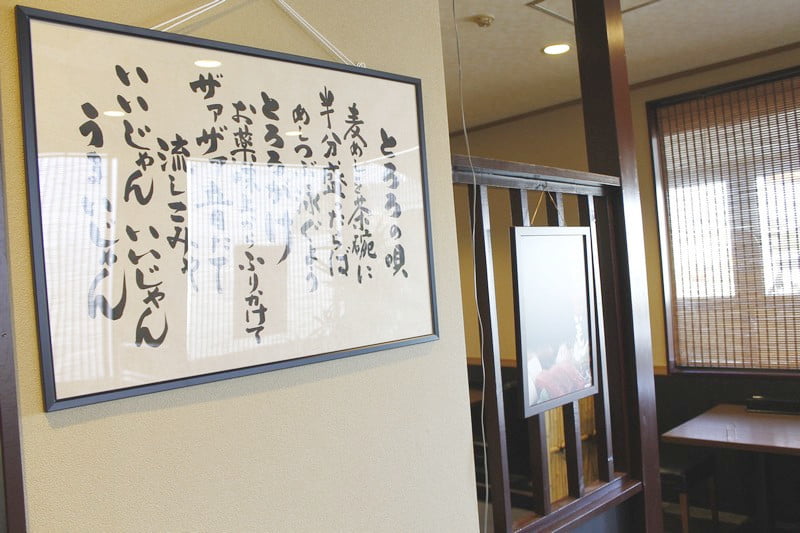 とろろの唄
麦めしを茶碗に
半分盛ったらば
めしつぶ泳ぐよう
とろろかけ
お薬味上からふりかけて
ザァザァ音たて
流しこみゃ
いいじゃん いいじゃん
うまいじゃん